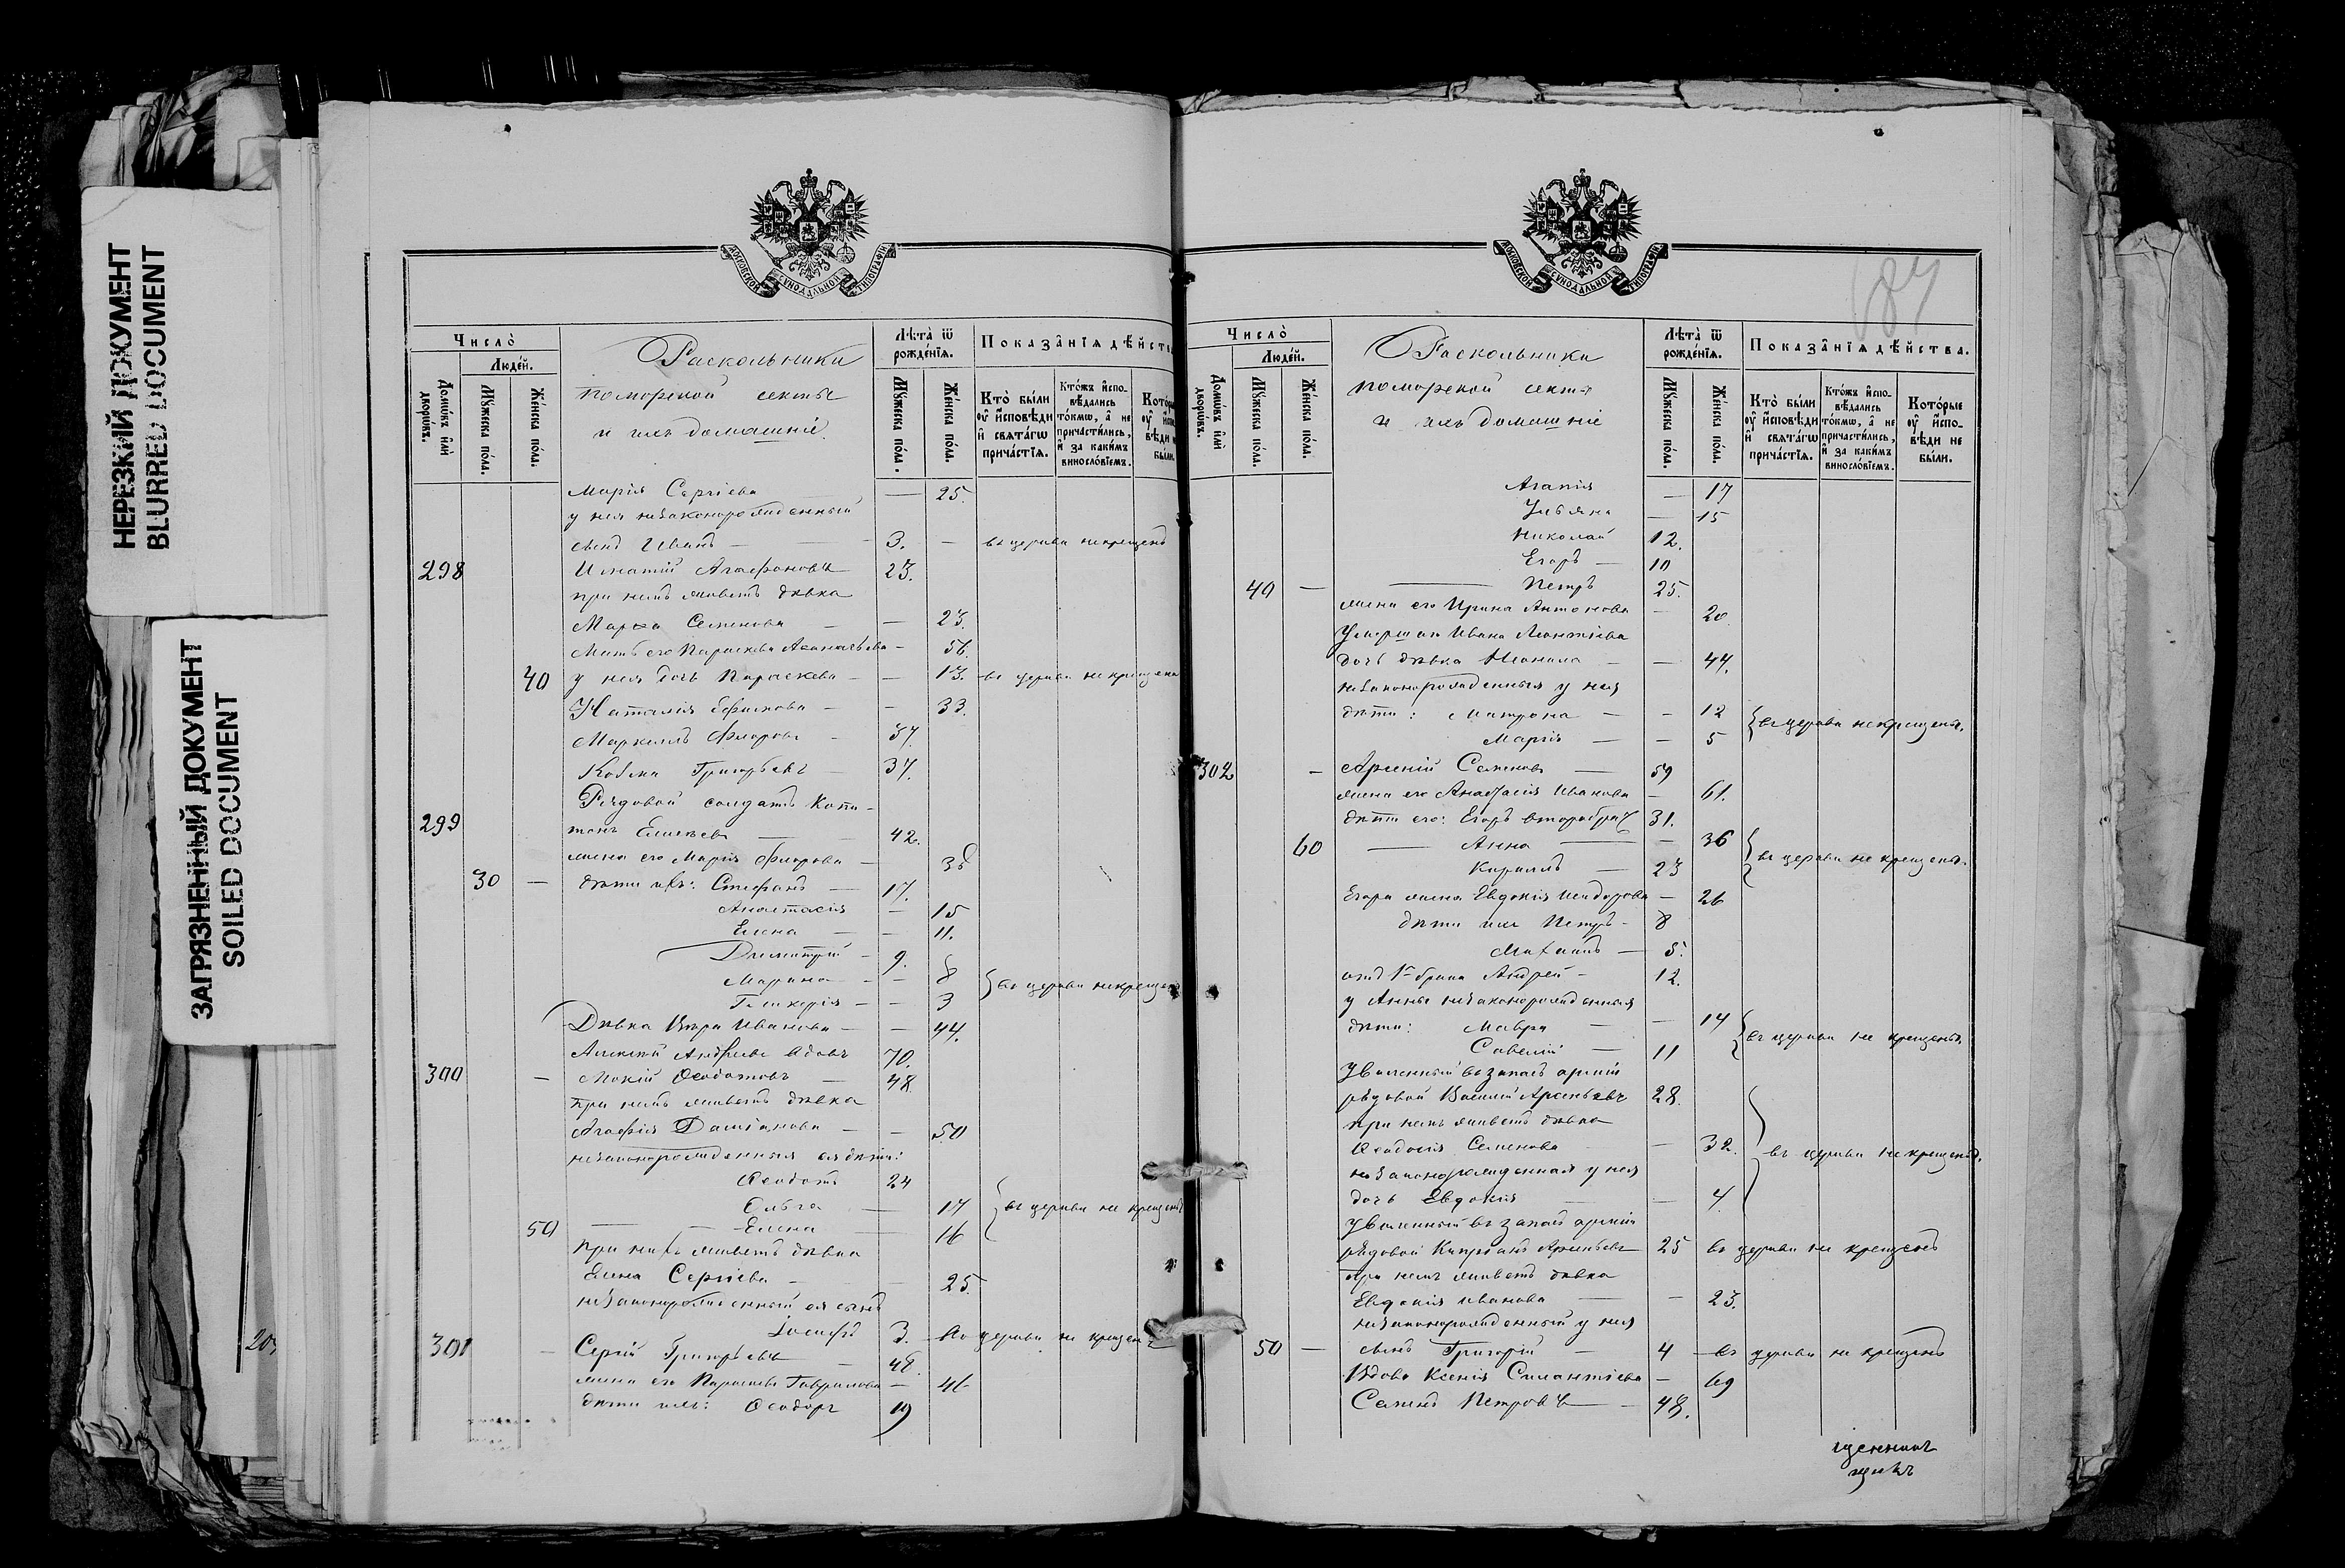 НЕРЕЗКИЙ ДОКУМЕНТ
BLURRED DOCUMENT
ЗАГРЯЗНЕННЫЙ ДОКУМЕНТ
SOILED DOCUMENT
МОСКОВСКОЙ СѴНОДАЛЬНОЙ ТИПОГРАФІИ
Число̀
Людéй.
Домѡ́въ и҆лѝ дворѡ́въ.
Мꙋ́жеска по́ла.
Же́нска по́ла.
Раскольники
поморской секты
и ихъ домашніе.
Лѣта̀ ѿ рождéнїѧ.
Мꙋ́жеска по́ла.
Же́нска по́ла.
Показа̂нїѧ дѣ́йств
Кто̀ бы́ли ᲂу҆ и҆сповѣди и҆ свята́гѡ прича́стїѧ.
Кто́жъ и҆спо-вѣ́дались то́кмѡ, а҆ не причасти́лись, и҆ за каки́мъ винослóвїемъ.
Марія Сергіева — 25.
у нея незаконорожденный
сынъ Иванъ — 3. — въ церкви некрещенъ
298 Игнатій Агафоновъ 23.
при немъ живетъ дѣвка
Марѳа Семенова — — 23.
Мать его Параскева — 56.
40 у нея дочь Параскева — — 13. въ церкви некрещена
Наталія Ефимова — — 33.
Маркеллъ Флоровъ — 37.
Григорьевъ — 37.
Рядовой солдатъ Капи-
299 тонъ Елисѣевъ — 42.
жена его Марія Флорова — 38
30 — дѣти ихъ: Стефанъ — 17.
Анастасія — 15
Елена — — 11.
Димитрій — 9.
Марина — — 8
Гликерія — — 3
въ церкви некрещены
Дѣвка Вѣра Иванова — — 44.
Алексѣй Андреевъ вдовъ 70.
300 — Мокій Ѳеодотовъ — 48
при немъ живетъ дѣвка
Агафія Даміанова — — 50
незаконорожденныя ея дѣти:
Ѳеодотъ 24
Ольга — 17
50 — — Елена — 16
въ церкви не крещены
при нихъ живетъ дѣвка
Елена Сергіева — — 25.
незаконорожденный ея сынъ
Іосифъ 3. — въ церкви не крещенъ
301 — Сергій Григорьевъ — 48.
жена его Параскева Гаврилова — 46
дѣти ихъ: Ѳеодоръ 19
МОСКОВСКОЙ СѴНОДАЛЬНОЙ ТИПОГРАФІИ
Число̀
Людéй.
Домѡ́въ и҆лѝ дворѡ́въ.
Мꙋ́жеска по́ла.
Же́нска по́ла.
Раскольники
поморской секты
и ихъ домашніе
Лѣта̀ ѿ рождéнїѧ.
Мꙋ́жеска по́ла.
Же́нска по́ла.
Показа̂нїѧ дѣ́йства.
Кто̀ бы́ли ᲂу҆ и҆сповѣди и҆ свята́гѡ прича́стїѧ.
Кто́жъ и҆спо-вѣ́дались то́кмѡ, а҆ не причасти́лись, и҆ за каки́мъ винослóвїемъ.
Кото́рые ᲂу҆ и҆спо-вѣ́ди не бы́ли.
Агапія — 17
Ульяна — 15
Николай 12.
Егоръ — 10
40 — — Петръ 25.
жена его Ирина Антонова — 20.
Умершаго Ивана Леонтіева
дочь дѣвка — — 44.
незаконорожденныя у нея
дѣти: Матрона — — 12
Марія — — 5
въ церкви некрещены.
302 — Арсеній Семеновъ — 59
жена его Анастасія Иванова — 61.
дѣти его: Егоръ второбрач. 31.
60 — Анна — — 36
Кириллъ — 23
въ церкви не крещены.
Егора жена Евдокія Исидорова — 26
дѣти ихъ Петръ — 8
Михаилъ — 5.
отъ 1го брака Андрей — 12.
у Анны незаконорожденныя
дѣти: Мавра — — 14
Савелій — 11
въ церкви не крещены
Уволенный въ запасъ арміи
рядовой Василій Арсеньевъ 28.
при немъ живетъ дѣвка
Ѳеодосія Семенова — 32.
незаконорожденная у нея
дочь Евдокія — — 4.
въ церкви некрещены.
Уволенный въ запасъ арміи
рядовой Кипріанъ Арсеньевъ 25 въ церкви не крещенъ
при немъ живетъ дѣвка
Евдокія Иванова — — 23.
незаконорожденный у нея
50 — сынъ Григорій — 4 — въ церкви не крещенъ
Вдова Ксенія Силантіева — 69
Семенъ Петровъ — 48.
щенникъ